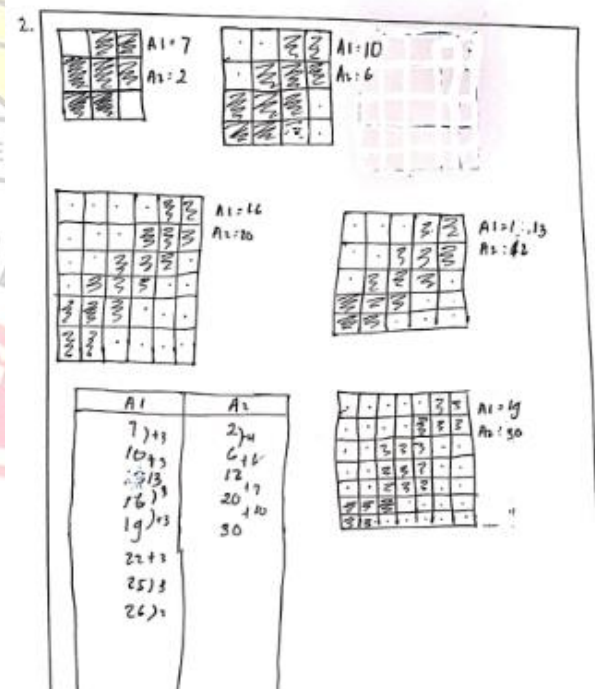 2.
A1=7
A2:2
A1:10
A2:6
A1=16
A2:20
13
A2:12
A1=19
A2:30
A1 A2
7)+3 2
10+3 6
13 12
16) 20
19)+3 30
22+3
25)3
26)2